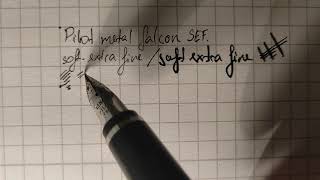 Pilot metal falcon SEF.
soft extra fine / soft extra fine